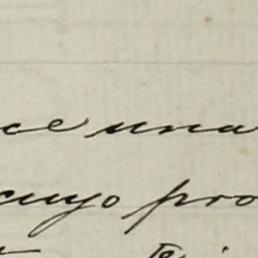 ce una
cuyo pro